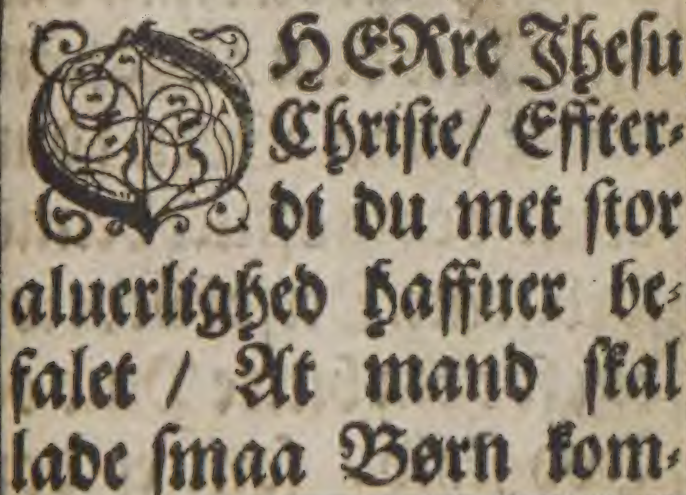 O HERre Jhesu
Christe/ Effter⸗
di du met stor
aluerlighed haffuer be⸗
falet / At mand skal
lade smaa Børn kom⸗